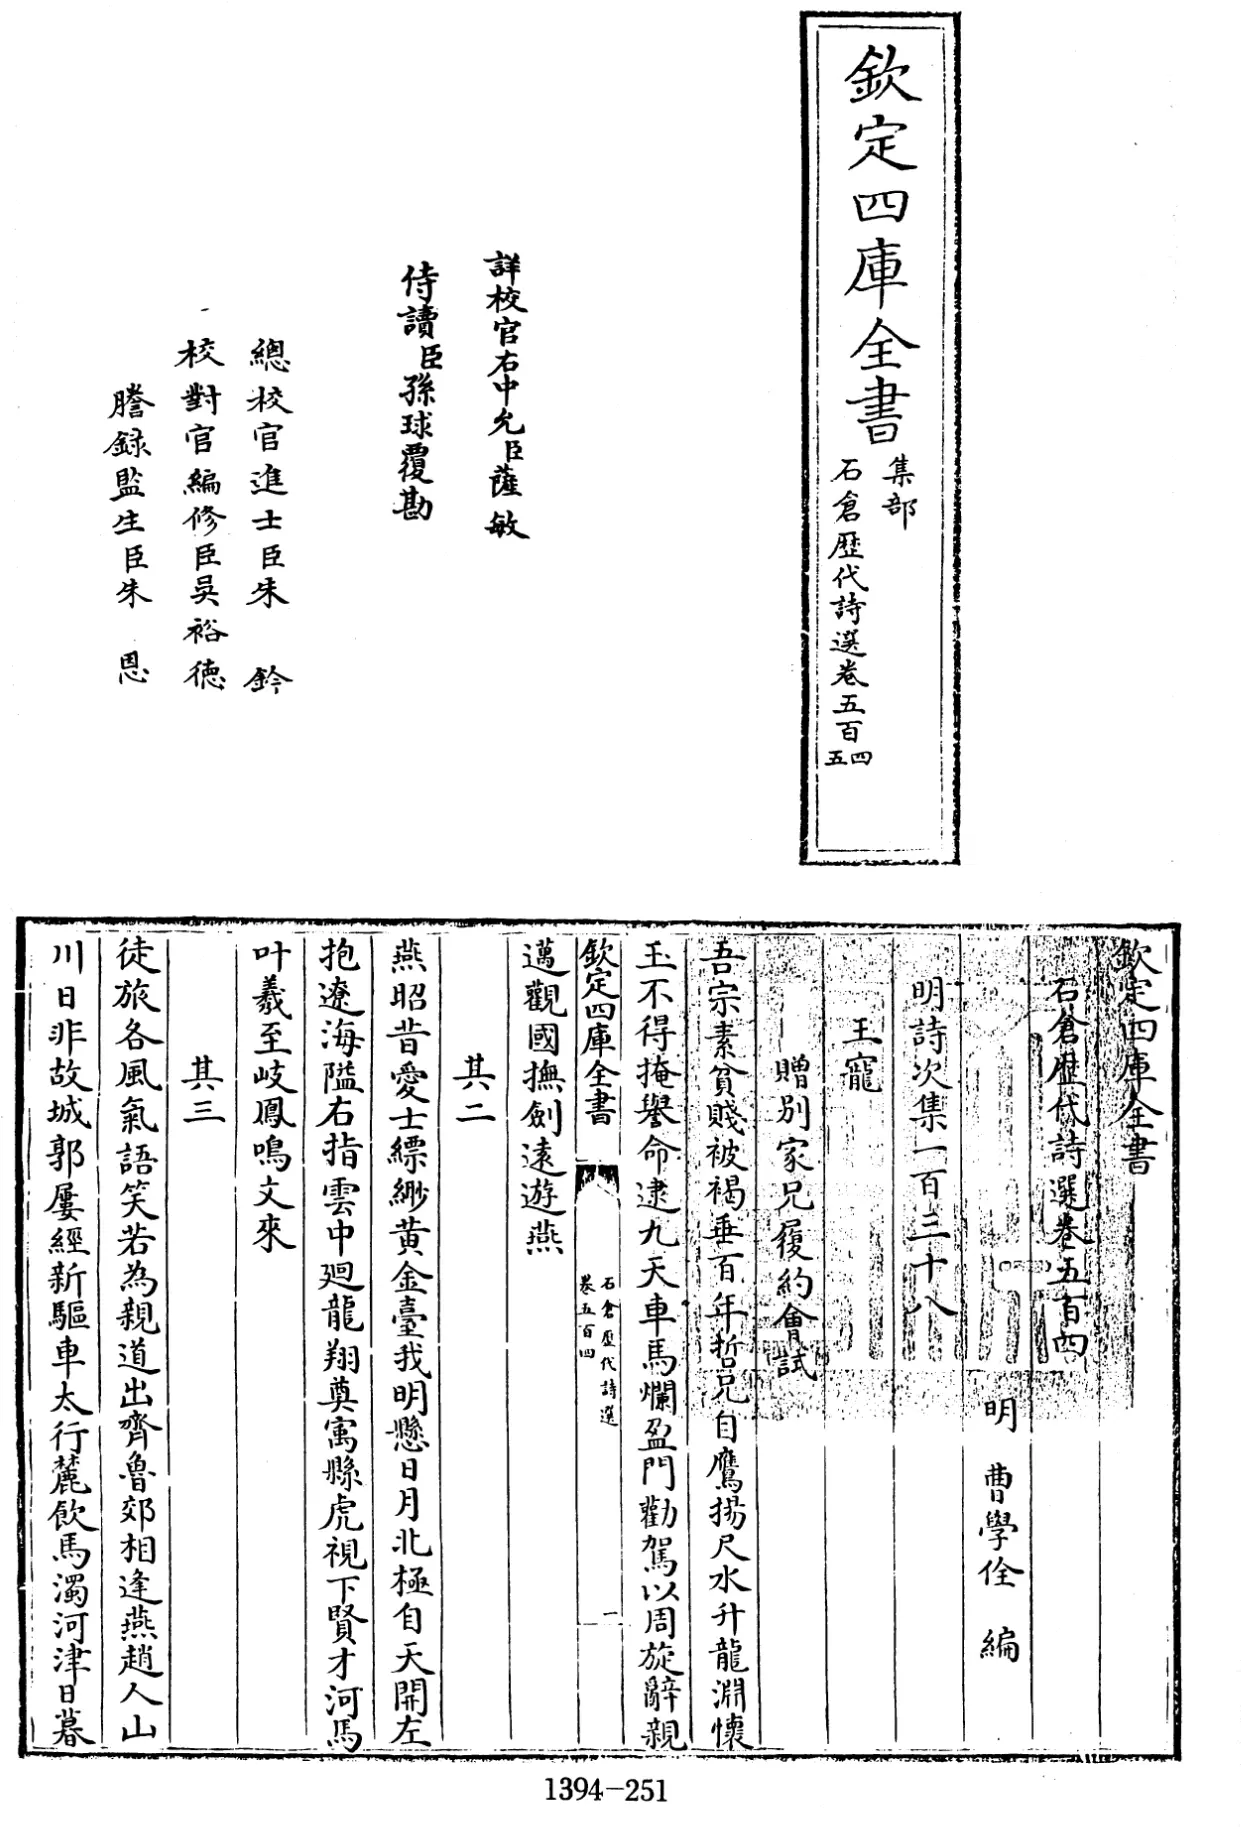 欽定四庫全書
集部
石倉歷代詩選卷五百四
五
詳校官右中允臣薩敏
侍讀臣孫球覆勘
總校官進士臣朱鈐
校對官編修臣吳裕德
謄錄監生臣朱恩
欽定四庫全書
石倉歷代詩選卷五百四
明 曹學佺 編
明詩次集一百三十八
王寵
贈別家兄履約會試
吾宗素貧賤被褐垂百年哲兄自鷹揚尺水升龍淵懷
玉不得掩譽命逮九天車馬爛盈門勸駕以周旋辭親
欽定四庫全書
石倉歷代詩選
卷五百四
一
邁觀國撫劍遠遊燕
其二
燕昭昔愛士縹緲黄金臺我明懸日月北極自天開左
抱遼海隘右指雲中廻龍翔奠寓縣虎視下賢才河馬
叶羲至岐鳳鳴文來
其三
徒旅各風氣語笑若為親道出齊魯郊相逢燕趙人山
川日非故城郭屢經新驅車太行麓飲馬濁河津日暮
1394-251